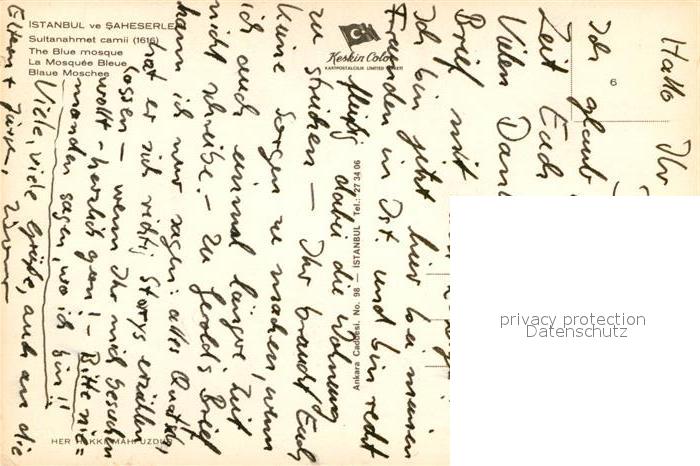 İSTANBUL ve ŞAHESERLE
Sultanahmet camii (1616)
The Blue mosque
La Mosquée Bleue
Blaue Moschee
Keskin Color
KARTPOSTALCILIK LIMITED ŞİRKETİ
6
Ankara Caddesi. No. 98 — İSTANBUL Tel.: 27 34 06
HER HAKKI MAHFUZDUR
privacy protection
Datenschutz
Hallo Ihr
Ich glaub
Zeit Euch
Vielen Dan
Brief mit
Ich bin jetzt hier bei meinen
Freunden in Ist. und bin recht
fleißig dabei die Wohnung
zu streichen — Ihr braucht Euch
keine Sorgen zu machen, wenn
ich auch einmal längere Zeit
nicht schreibe. — Zu Gerold's Brief
kann ich nur sagen: alles Quatsch,
hat er sich richtig Storys erzählen
lassen — wenn Ihr mich besuchen
wollt — herzlich gern! — Bitte nie=
manden sagen, wo ich bin!!
Viele, viele Grüße, auch an die
Eltern +